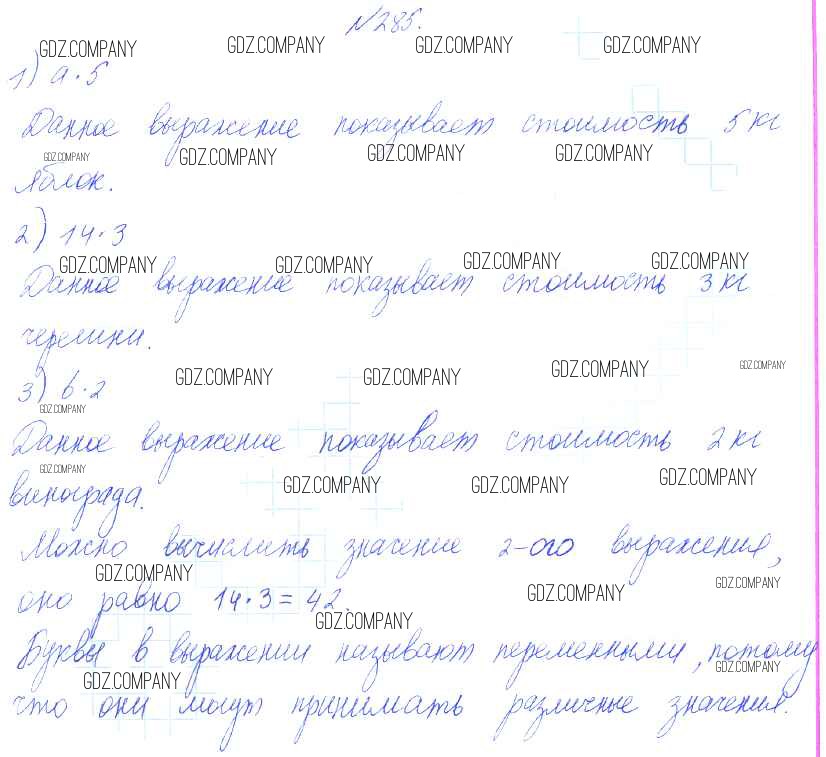 №285.
GDZ.COMPANY GDZ.COMPANY GDZ.COMPANY GDZ.COMPANY
1) а·5
Данное выражение показывает стоимость 5 кг
GDZ.COMPANY GDZ.COMPANY GDZ.COMPANY GDZ.COMPANY
яблок.
2) 14·3
GDZ.COMPANY GDZ.COMPANY GDZ.COMPANY GDZ.COMPANY
Данное выражение показывает стоимость 3 кг
черешни.
GDZ.COMPANY GDZ.COMPANY GDZ.COMPANY GDZ.COMPANY
3) b·2
GDZ.COMPANY
Данное выражение показывает стоимость 2 кг
GDZ.COMPANY GDZ.COMPANY GDZ.COMPANY GDZ.COMPANY
винограда.
Можно вычислить значение 2-ого выражения,
GDZ.COMPANY GDZ.COMPANY GDZ.COMPANY
оно равно 14·3=42.
GDZ.COMPANY
Буквы в выражении называют переменными, потому
GDZ.COMPANY GDZ.COMPANY
что они могут принимать различные значения.